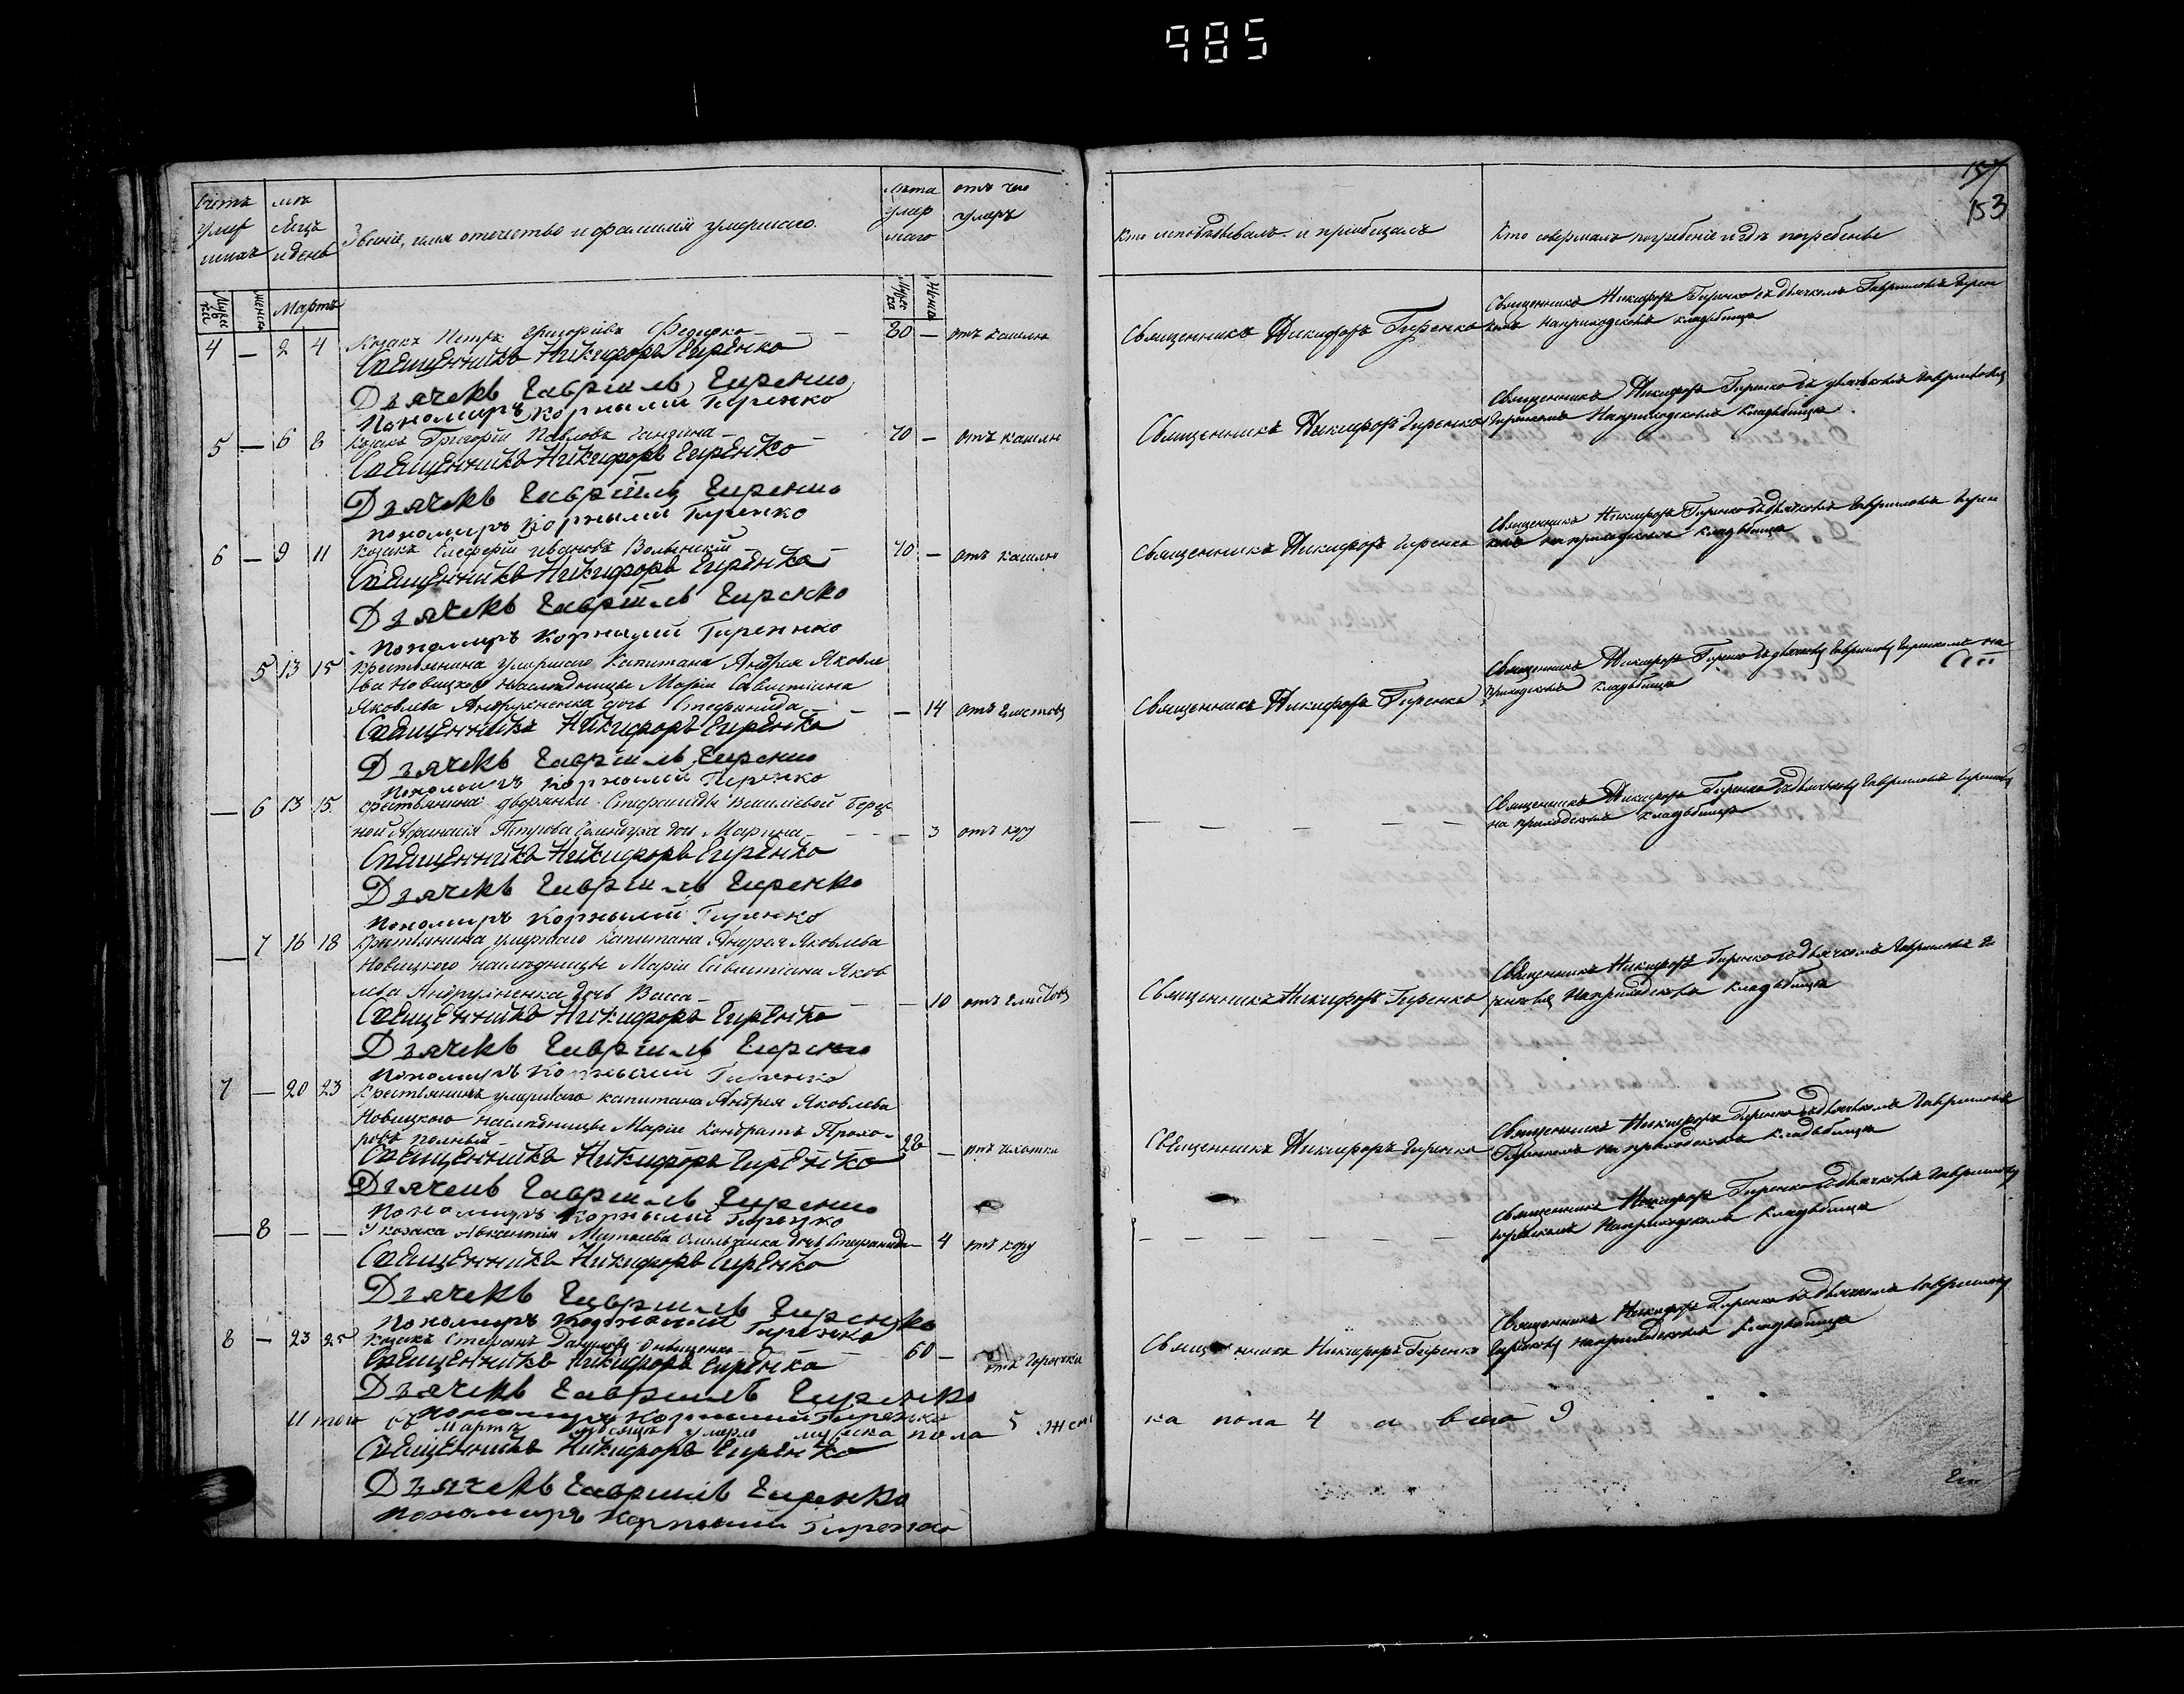 985
157
153
Счетъ умерших
мѣсяцъ и день
Званіе, имя отечество и фамилія умершаго.
лѣта умершаго
отъ чего умеръ
Кто исповѣдывалъ и пріобщалъ
Кто совершалъ погребеніе и гдѣ погребены
Мужеска
Женска
Мартъ
Мужеска
Женска
4 — 2 4 Козакъ Петръ Григоріевъ Федирко — — — 80 — отъ кашлю
Священникъ Никифоръ Гиренко
Священникъ Никифоръ Гиренко съ дьячкомъ Гавриломъ Гирен
комъ на приходскомъ кладбищѣ
Священникъ Никифоръ Гиренко
Дьячекъ Гавріилъ Гиренко
Пономарь Корнылій Гиренко
5 — 6 8 Козакъ Григорій Павловъ — 70 — отъ кашлю
Священникъ Никифоръ Гиренко
Священникъ Никифоръ Гиренко съ дьячкомъ Гавриломъ
Гиренкомъ на приходскомъ кладбищѣ
Священникъ Никифоръ Гиренко
Дьячекъ Гавріилъ Гиренко
Пономарь Корнылій Гиренко
6 — 9 11 Козакъ Ивановъ Волынскій — 70 — отъ кашлю
Священникъ Никифоръ Гиренко
Священникъ Никифоръ Гиренко съ дьячкомъ Гавриломъ Гирен
комъ на приходскомъ кладбищѣ
Священникъ Никифоръ Гиренко
Дьячекъ Гавріилъ Гиренко
Пономарь Корнылій Гиренко
5 13 15 Крестьянина умершаго Капитана Андрея Яковле
ва Новицкого наслѣдницы Маріи Савистіана
Яковлева Андрухненка дочь Стефанида — — 14 отъ глистовъ
Священникъ Никифоръ Гиренко
Священникъ Никифоръ Гиренко съ дьячкомъ Гавриломъ Гиренкомъ на
приходскомъ кладбищѣ
Священникъ Никифоръ Гиренко
Дьячекъ Гавріилъ Гиренко
Пономарь Корнылій Гиренко
— 6 13 15 Крестьянина дворянки Стефаниды Василіевой
Афанасія Петрова дочь Марина — — — 3 отъ кору
— — — — —
Священникъ Никифоръ Гиренко съ дьячкомъ Гавриломъ Гиренкомъ
на приходскомъ кладбищѣ
Священникъ Никифоръ Гиренко
Дьячекъ Гавріилъ Гиренко
Пономарь Корнылій Гиренко
— 7 16 18 Крестьянина умершаго Капитана Андрея Яковлева
Новицкого наслѣдницы Маріи Савистіана Яков
лева Андрухненка дочь Васса — — 10 отъ глистовъ
Священникъ Никифоръ Гиренко
Священникъ Никифоръ Гиренко съ дьячкомъ Гавриломъ Ги
ренкомъ на приходскомъ кладбищѣ
Священникъ Никифоръ Гиренко
Дьячекъ Гавріилъ Гиренко
Пономарь Корнылій Гиренко
7 — 20 23 Крестьянинъ умершаго капитана Андрея Яковлева
Новицкого наслѣдницы Маріи Кондратъ Прохо-
ровъ — отъ
Священникъ Никифоръ Гиренко
Священникъ Никифоръ Гиренко съ дьячкомъ Гавриломъ
Гиренкомъ на приходскомъ кладбищѣ
Священникъ Никифоръ Гиренко
Дьячекъ Гавріилъ Гиренко
Пономарь Корнылій Гиренко
— 8 — — У козака Авксентія Матвѣева дочь Стефанида — 4 отъ кору
— — — — — —
Священникъ Никифоръ Гиренко съ дьячкомъ Гавриломъ
Гиренкомъ на приходскомъ кладбищѣ
Священникъ Никифоръ Гиренко
Дьячекъ Гавріилъ Гиренко
Пономарь Корнылій Гиренко
8 — 23 25 Козакъ Стефанъ — 60 — отъ горячки
Священникъ Никифоръ Гиренко
Священникъ Никифоръ Гиренко съ дьячкомъ Гавриломъ
Гиренкомъ на приходскомъ кладбищѣ
Священникъ Никифоръ Гиренко
Дьячекъ Гавріилъ Гиренко
Пономарь Корнылій Гиренко
Итого въ Мартѣ мѣсяцѣ умерло мужеска пола 5 женска пола 4 а всего 9
Священникъ Никифоръ Гиренко
Дьячекъ Гавріилъ Гиренко
Пономарь Корнылій Гиренко